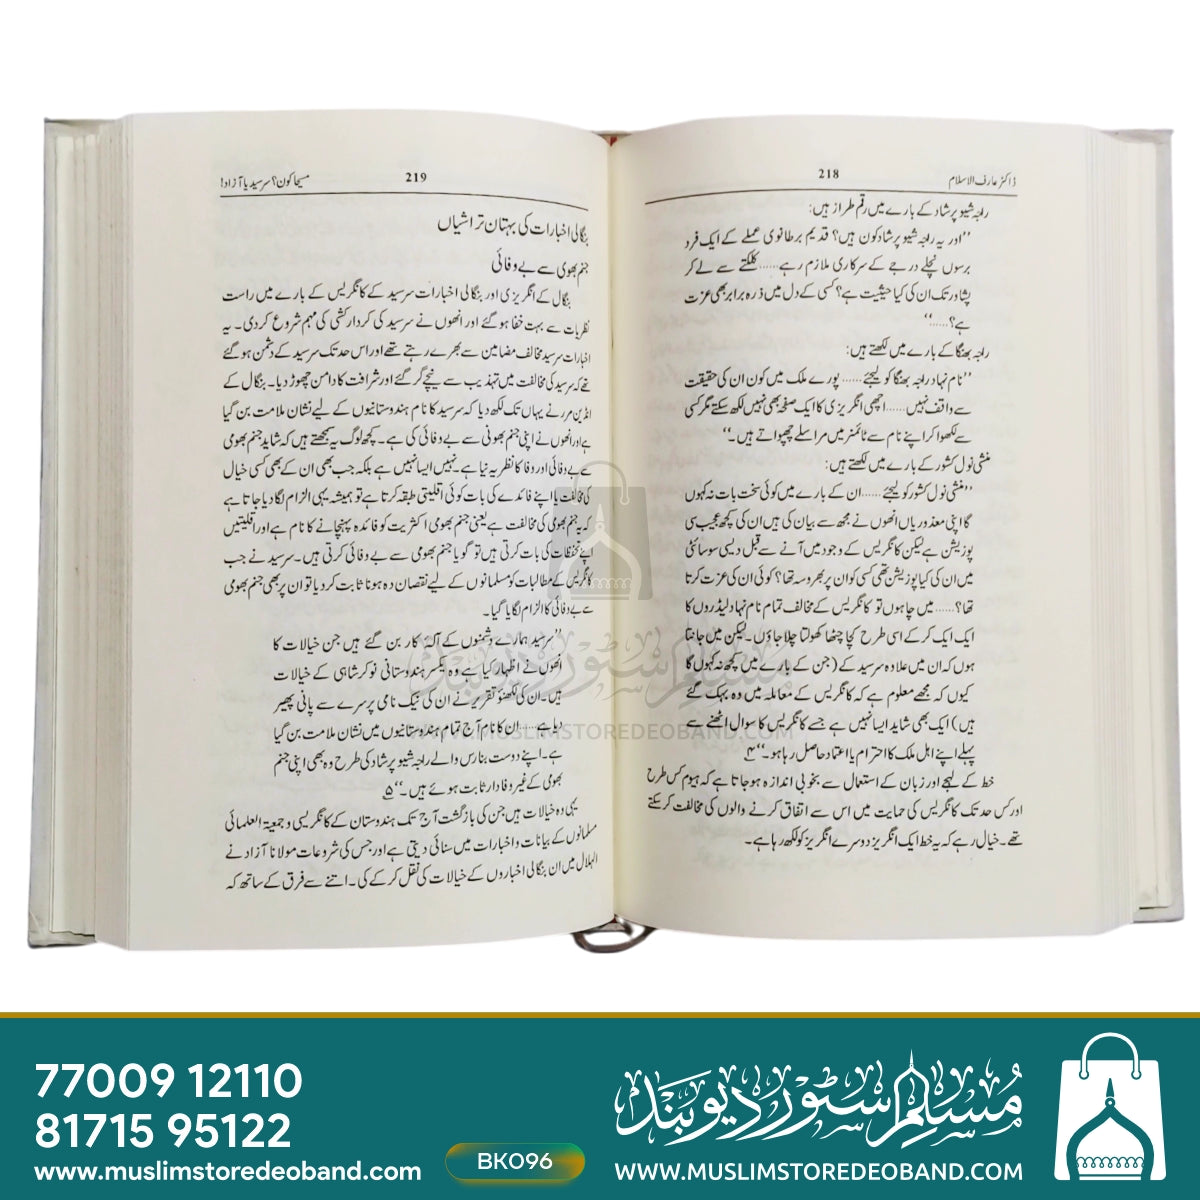 ڈاکٹر عارف الاسلام
218
راجہ شیو پرشاد کے بارے میں رقم طراز ہیں:
”اور یہ راجہ شیو پرشاد کون ہیں؟ قدیم برطانوی عملے کے ایک فرد
برسوں نچلے درجے کے سرکاری ملازم رہے...... کلکتے سے لے کر
پشاور تک ان کی کیا حیثیت ہے؟ کسی کے دل میں ذرہ برابر بھی عزت
ہے؟......“
راجہ بھنگا کے بارے میں لکھتے ہیں:
”نام نہاد راجہ بھنگا کو لیجئے...... پورے ملک میں کون ان کی حقیقت
سے واقف نہیں...... اچھی انگریزی کا ایک صفحہ بھی نہیں لکھ سکتے مگر کسی
سے لکھوا کر اپنے نام سے ٹائمنر میں مراسلے چھپواتے ہیں۔“
منشی نول کشور کے بارے میں لکھتے ہیں:
”منشی نول کشور کو لیجئے...... ان کے بارے میں کوئی سخت بات نہ کہوں
گا اپنی معذوریاں انھوں نے مجھ سے بیان کی ہیں ان کی کچھ عجیب سی
پوزیشن ہے لیکن کانگریس کے وجود میں آنے سے قبل دیسی سوسائٹی
میں ان کی کیا پوزیشن تھی کسی کو ان پر بھروسہ تھا؟ کوئی ان کی عزت کرتا
تھا؟...... میں چاہوں تو کانگریس کے مخالف تمام نام نہاد لیڈروں کا
ایک ایک کر کے اسی طرح کچا چٹھا کھولتا چلا جاؤں۔ لیکن میں جانتا
ہوں کہ ان میں علاوہ سرسید کے (جن کے بارے میں کچھ نہ کہوں گا
کیوں کہ مجھے معلوم ہے کہ کانگریس کے معاملہ میں وہ بہک گئے
ہیں) ایک بھی شاید ایسا نہیں ہے جسے کانگریس کا سوال اٹھنے سے
پہلے اپنے اہل ملک کا احترام یا اعتماد حاصل رہا ہو۔“ ۴
خط کے لہجے اور زبان کے استعمال سے بخوبی اندازہ ہو جاتا ہے کہ ہیوم کس طرح
اور کس حد تک کانگریس کی حمایت میں اس سے اتفاق کرنے والوں کی مخالفت کر سکتے
تھے۔ خیال رہے کہ یہ خط ایک انگریز دوسرے انگریز کو لکھ رہا ہے۔
219
مسیحا کون؟ سرسید یا آزاد!
بنگالی اخبارات کی بہتان تراشیاں
جنم بھومی سے بے وفائی
بنگال کے انگریزی اور بنگالی اخبارات سرسید کے کانگریس کے بارے میں راست
نظریات سے بہت خفا ہو گئے اور انھوں نے سرسید کی کردار کشی کی مہم شروع کر دی۔ یہ
اخبارات سرسید مخالف مضامین سے بھرے رہتے تھے اور اس حد تک سرسید کے دشمن ہو گئے
تھے کہ سرسید کی مخالفت میں تہذیب سے نیچے گر گئے اور شرافت کا دامن چھوڑ دیا۔ بنگال کے
انڈین مرر نے یہاں تک لکھ دیا کہ سرسید کا نام ہندوستانیوں کے لیے نشان ملامت بن گیا
ہے اور انھوں نے اپنی جنم بھونی سے بے وفائی کی ہے۔ کچھ لوگ یہ سمجھتے ہیں کہ شاید جنم بھومی
سے بے وفائی اور وفا کا نظریہ نیا ہے۔ نہیں ایسا نہیں ہے بلکہ جب بھی ان کے بھی کسی خیال
کی مخالفت یا اپنے فائدے کی بات کوئی اقلیتی طبقہ کرتا ہے تو ہمیشہ یہی الزام لگا دیا جاتا ہے
کہ یہ جنم بھومی کی مخالفت ہے یعنی جنم بھومی اکثریت کو فائدہ پہنچانے کا نام ہے اور اقلیتیں
اپنے تحفظات کی بات کرتی ہیں تو گویا جنم بھومی سے بے وفائی کرتی ہیں۔ سرسید نے جب
کانگریس کے مطالبات کو مسلمانوں کے لیے نقصان دہ ہونا ثابت کر دیا تو ان پر بھی جنم بھومی
سے بے وفائی کا الزام لگایا گیا۔
”سرسید ہمارے دشمنوں کے آلۂ کار بن گئے ہیں جن خیالات کا
انھوں نے اظہار کیا ہے وہ یکسر ہندوستانی نوکر شاہی کے خیالات
ہیں۔ ان کی لکھنؤ تقریر نے ان کی نیک نامی پر سرے سے پانی پھیر
دیا ہے...... ان کا نام آج تمام ہندوستانیوں میں نشان ملامت بن گیا
ہے۔ اپنے دوست بنارس والے راجہ شیو پرشاد کی طرح وہ بھی اپنی جنم
بھومی کے غیر وفادار ثابت ہوئے ہیں۔“ ۵
یہی وہ خیالات ہیں جن کی بازگشت آج تک ہندوستان کے کانگریسی و جمعیۃ العلمائی
مسلمانوں کے بیانات و اخبارات میں سنائی دیتی ہے اور جس کی شروعات مولانا آزاد نے
الہلال میں ان بنگالی اخباروں کے خیالات کی نقل کر کے کی۔ اتنے سے فرق کے ساتھ کہ
مسلم سٹور دیوبند
WWW.MUSLIMSTOREDEOBAND.COM
77009 12110
81715 95122
www.muslimstoredeoband.com
BK096
مسلم سٹور دیوبند
WWW.MUSLIMSTOREDEOBAND.COM